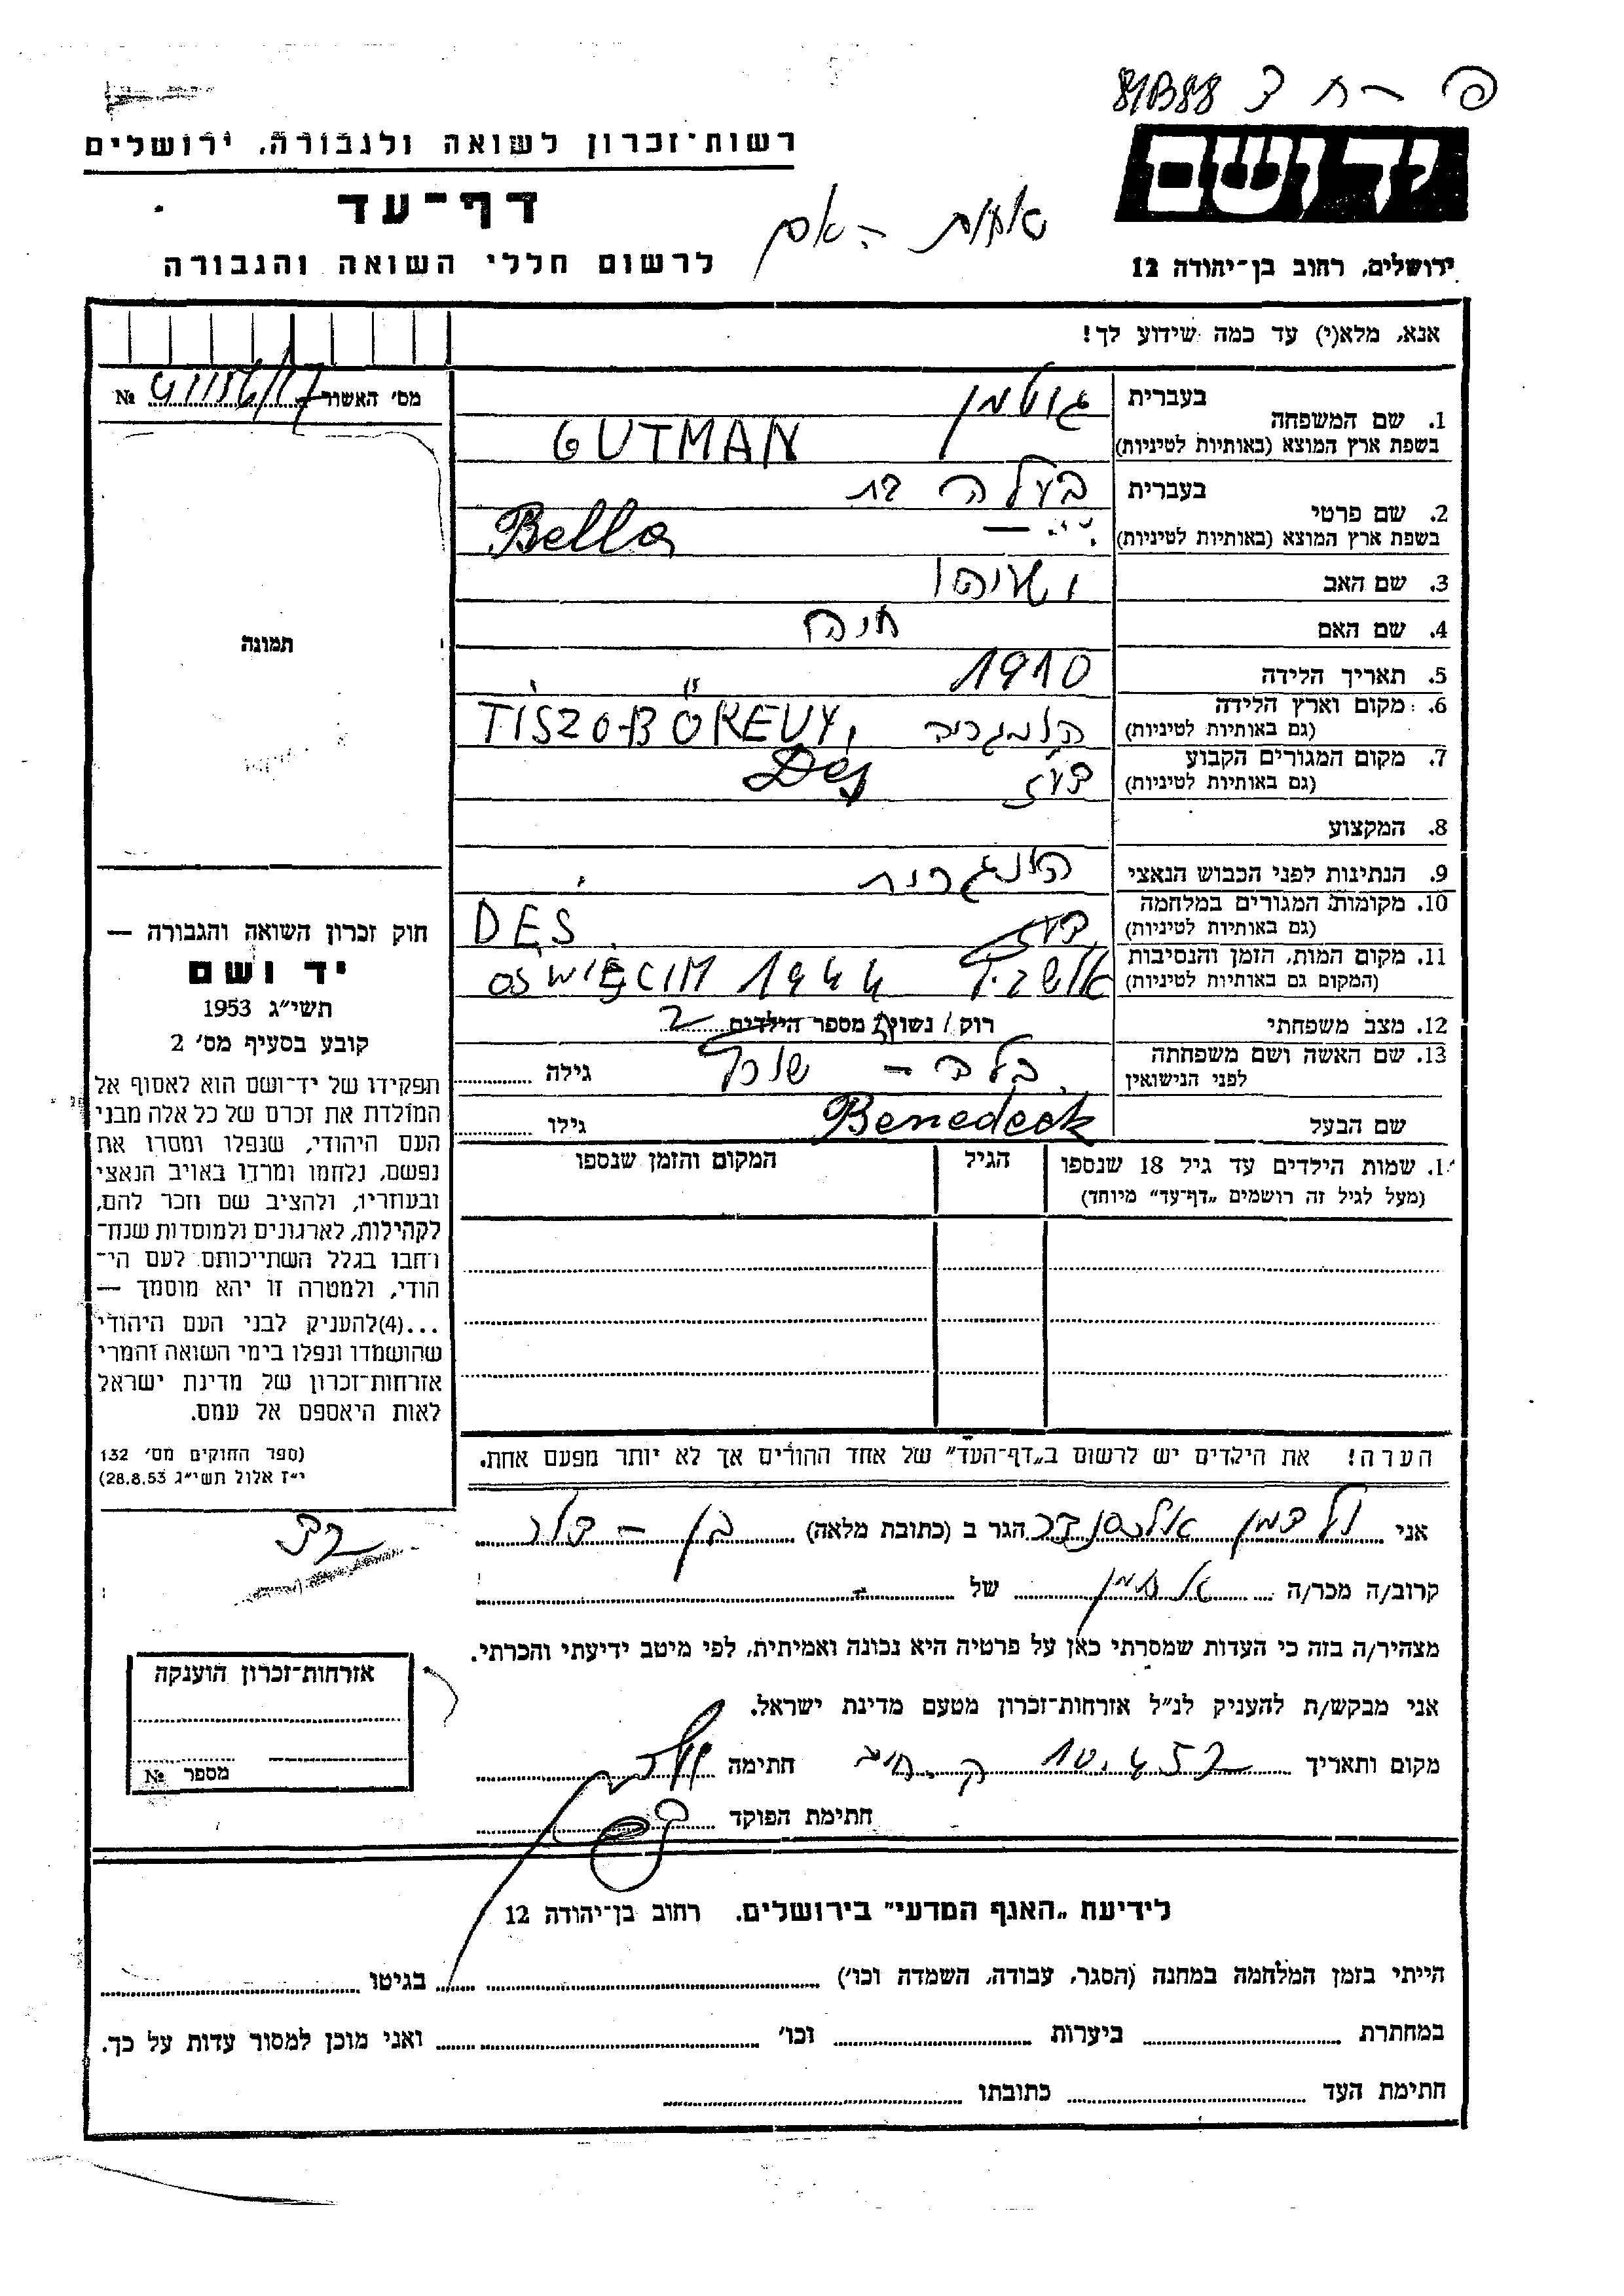 81B88
יד ושם
רשות־זכרון לשואה ולגבורה, ירושלים
דף־עד
ירושלים, רחוב בן־יהודה 12
לרשום חללי השואה והגבורה
אנא, מלא(י) עד כמה שידוע לך!
מס' האשור №
1. שם המשפחה
בעברית גוטמן
בשפת ארץ המוצא (באותיות לטיניות) GUTMAN
2. שם פרטי
בעברית
בשפת ארץ המוצא (באותיות לטיניות) Bella
3. שם האב
4. שם האם חיה
5. תאריך הלידה 1910
6. מקום וארץ הלידה
(גם באותיות לטיניות) הונגריה
7. מקום המגורים הקבוע
(גם באותיות לטיניות) דעז Dej
8. המקצוע
9. הנתינות לפני הכבוש הנאצי הונגרית
10. מקומות המגורים במלחמה
(גם באותיות לטיניות) דעז DES
11. מקום המות, הזמן והנסיבות
(המקום גם באותיות לטיניות) OSWIĘCIM 1944
12. מצב משפחתי רוק / נשוי / מספר הילדים 2
13. שם האשה ושם משפחתה
לפני הנישואין בלה - גילה
שם הבעל Benedeck גילו
1. שמות הילדים עד גיל 18 שנספו
(מעל לגיל זה רושמים „דף־עד” מיוחד)
הגיל
המקום והזמן שנספו
הערה! את הילדים יש לרשום ב„דף־העד” של אחד ההורים אך לא יותר מפעם אחת.
תמונה
חוק זכרון השואה והגבורה —
יד ושם
תשי״ג 1953
קובע בסעיף מס' 2
תפקידו של יד־ושם הוא לאסוף אל
המולדת את זכרם של כל אלה מבני
העם היהודי, שנפלו ומסרו את
נפשם, נלחמו ומרדו באויב הנאצי
ובעוזריו, ולהציב שם וזכר להם,
לקהילות, לארגונים ולמוסדות שנח־
רחבו בגלל השתייכותם לעם הי־
הודי, ולמטרה זו יהא מוסמך —
...(4)להעניק לבני העם היהודי
שהושמדו ונפלו בימי השואה והמרי
אזרחות־זכרון של מדינת ישראל
לאות היאספם אל עמם.
(ספר החוקים מס' 132
י״ז אלול תשי״ג 28.8.53)
אני אלכסנדר הגר ב (כתובת מלאה)
קרוב/ה מכר/ה של
מצהיר/ה בזה כי העדות שמסרתי כאן על פרטיה היא נכונה ואמיתית, לפי מיטב ידיעתי והכרתי.
אני מבקש/ת להעניק לנ״ל אזרחות־זכרון מטעם מדינת ישראל.
מקום ותאריך חתימה
חתימת הפוקד
אזרחות־זכרון הוענקה
מספר №
לידיעת „האגף המדעי” בירושלים. רחוב בן־יהודה 12
הייתי בזמן המלחמה במחנה (הסגר, עבודה, השמדה וכו') בגיטו
במחתרת ביערות וכו' ואני מוכן למסור עדות על כך.
חתימת העד כתובתו